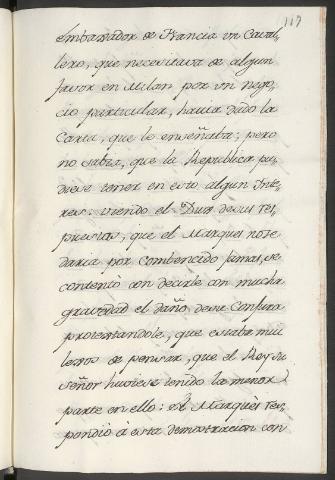 117
embaxador de Francia un Caval-
lero, que necesitava de algun
favor en Milan por un nego-
cio particular, havia dado la
Carta, que le enseñaba; pero
no sabia, que la Republica pu-
diese tener en esto algun Inte-
res: viendo el Dux de sus res-
puestas, que el Marques no se
daria por combencido jamas, se
contentò con decirle con mucha
gravedad el daño de su Conjura
protestandole, que estaba mui
lexos de pensar, que el Rey su
señor huviese tenido la menor
parte en ello: el Marquès res-
pondiò à esta demostracion con